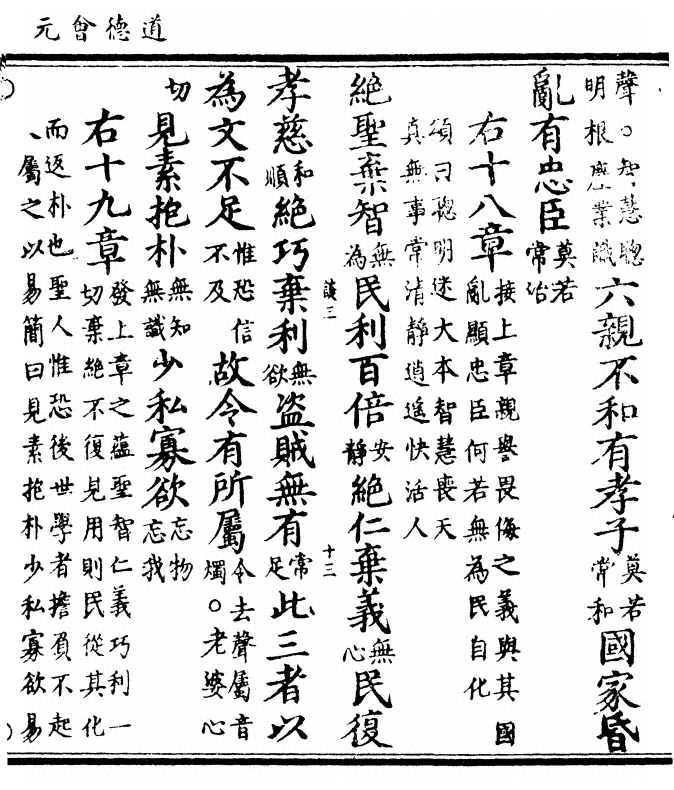 道德會元
聲。智慧聰明根塵業識六親不和有孝子莫若常和國家昏
亂有忠臣莫若常治
右十八章接上章親譽畏侮之義與其國亂顯忠臣何若無為民自化
頌曰聰明迷大本智慧喪天
真無事常清靜逍遙快活人
絕聖棄智無為民利百倍安靜絕仁棄義無心民復
三 十三
孝慈和順絕巧棄利無欲盜賊無有常足此三者以
為文不足惟恐信不及故令有所屬令去聲屬音燭。老婆心
切見素抱朴無知無識少私寡欲忘物忘我
右十九章發上章之蘊聖智仁義巧利一切棄絕不復見用則民從其化
而返朴也聖人惟恐後世學者擔負不起
、屬之以易簡曰見素抱朴少私寡欲易